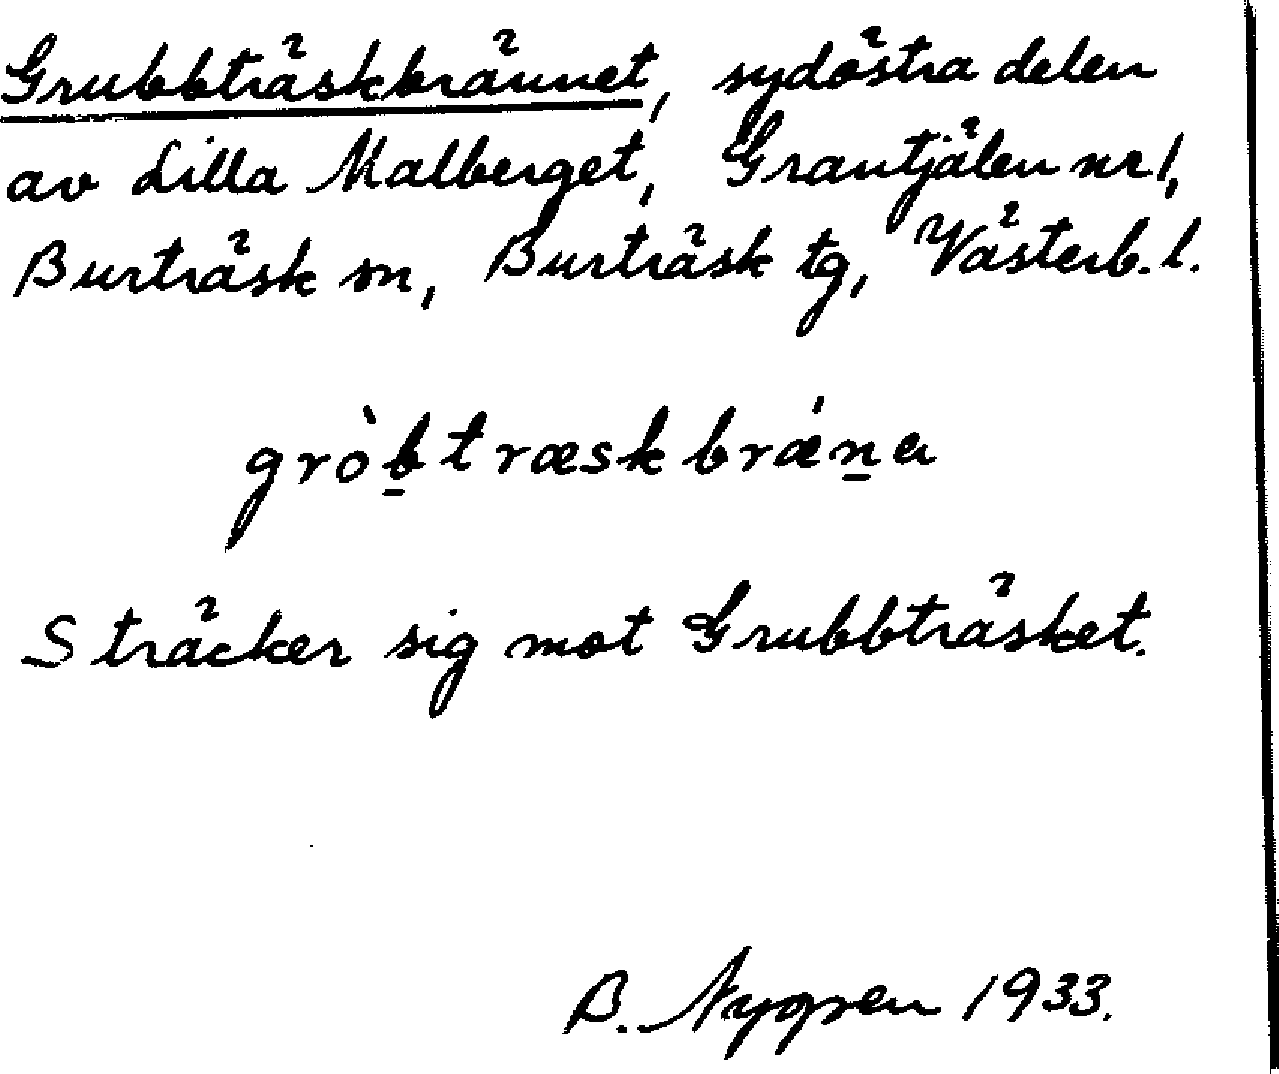 Grubbträskbrännet, sydöstra delen
av Lilla Malberget, Grantjälen nr 1,
Burträsk sn, Burträsk tg, Västerb. l.
grò̱btræskbrǽṉa
Sträcker sig mot Grubbträsket.
B. Nygren 1933.